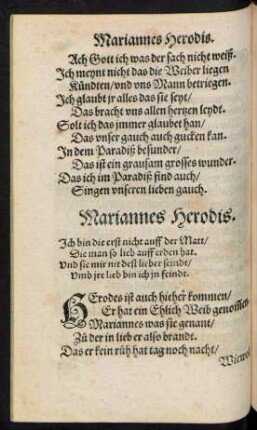 Mariannes Herodis.
Ach Gott ich was der sach nicht weiß.
Ich meynt nicht das die Weiber liegen
Kündten/ vnd vns Mann betriegen.
Ich glaubt jr alles das sie seyt/
Das bracht vns allen hertzen leydt.
Solt ich das jmmer glaubet han/
Das vnser gauch auch gucken kan.
In dem Paradiß besunder/
Das ist ein grausam grosses wunder.
Das ich im Paradiß find auch/
Singen vnseren lieben gauch.
Mariannes Herodis.
Ich bin die erst nicht auff der Matt/
Die man so lieb auff erden hat.
Vnd sie mir nit dest lieber seindt/
Vmb jre lieb bin ich jn feindt.
HErodes ist auch hieher kommen/
Er hat ein Ehlich Weib genommen
Mariannes was sie genant/
Zů der in lieb er also brandt.
Das er kein rüh hat tag noch nacht/
Wiewol